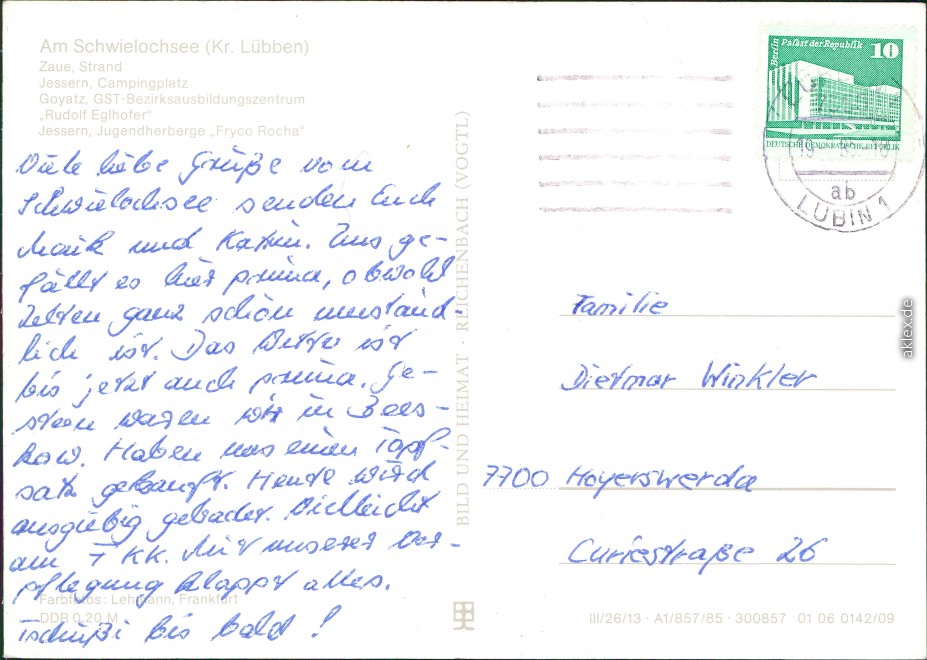 Am Schwielochsee (Kr. Lübben)
Zaue, Strand
Jessern, Campingplatz
Goyatz, GST-Bezirksausbildungszentrum
„Rudolf Eglhofer“
Jessern, Jugendherberge „Fryco Rocha“
Viele liebe Grüße vom
Schwielochsee senden Euch
Maik und Katrin. Uns ge-
fällt es hier prima, obwohl
Zelten ganz schön umständ-
lich ist. Das Wetter ist
bis jetzt auch prima. Ge-
stern waren wir in Bees-
kow. Haben uns einen Topf-
satz gekauft. Heute wird
ausgiebig gebadet. Vielleicht
am FKK. Mit unserer Ver-
pflegung klappt alles.
Tschüßi bis bald!
Farbfotos: Lehmann, Frankfurt
DDR 0,20 M
BILD UND HEIMAT · REICHENBACH (VOGTL)
Berlin Palast der Republik 10
DEUTSCHE DEMOKRATISCHE REPUBLIK
ab
LUBIN 1
Familie
Dietmar Winkler
7700 Hoyerswerda
Curiestraße 26
III/26/13 · A1/857/85 · 300857 01 06 0142/09
aklex.de